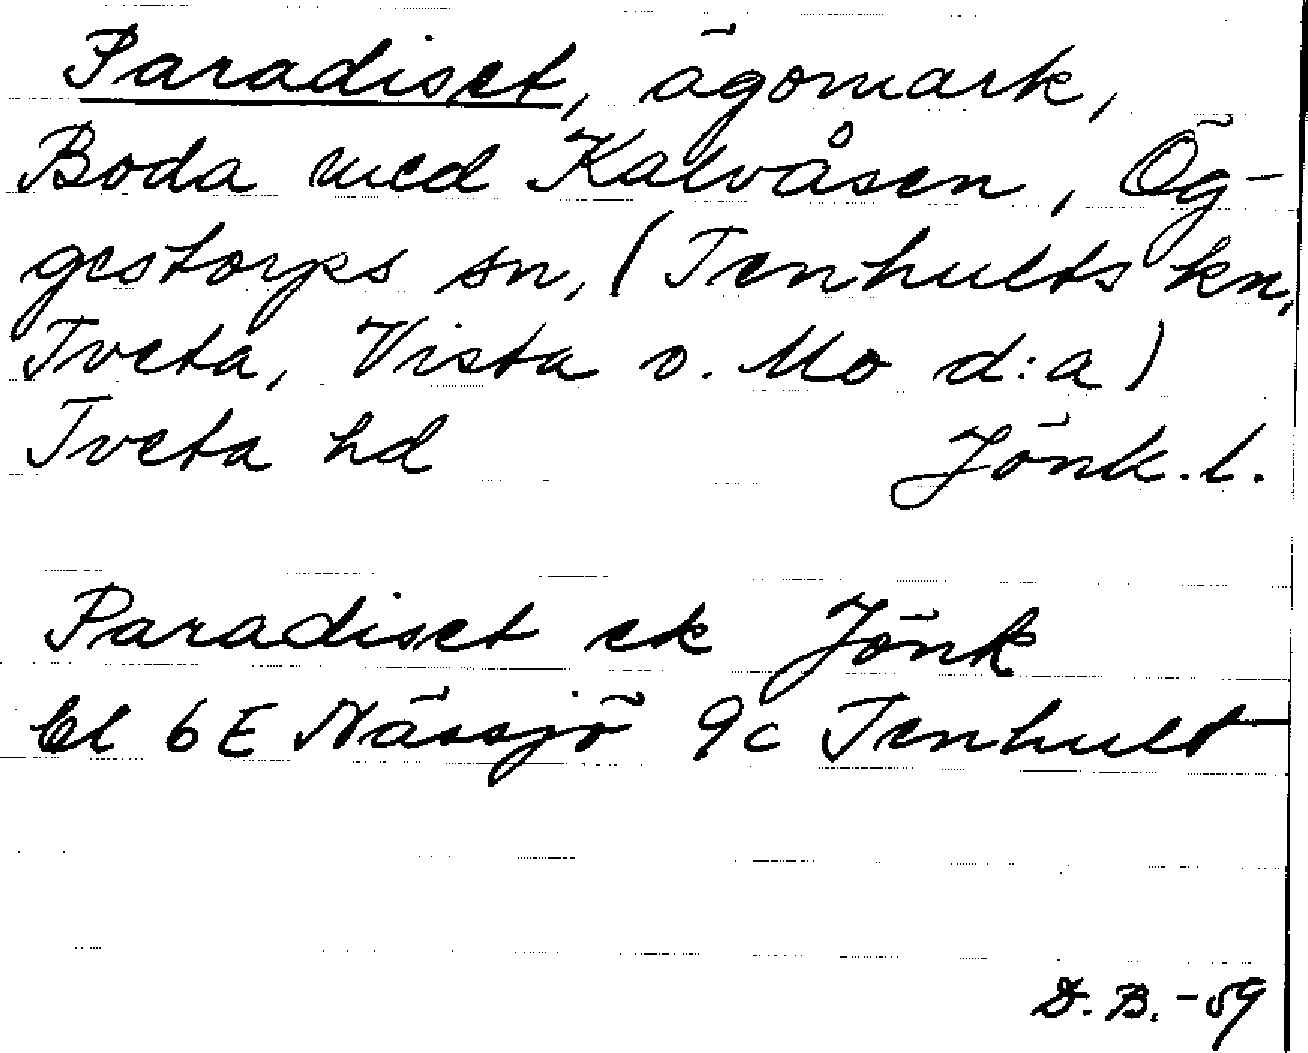 Paradiset, ägomark,
Boda med Kalvåsen, Ög-
gestorps sn, (Tenhults kn,
Tveta, Vista o. Mo d:a)
Tveta hd Jönk. l.
Paradiset ek Jönk
bl 6E Nässjö 9c Tenhult
D.B. -59